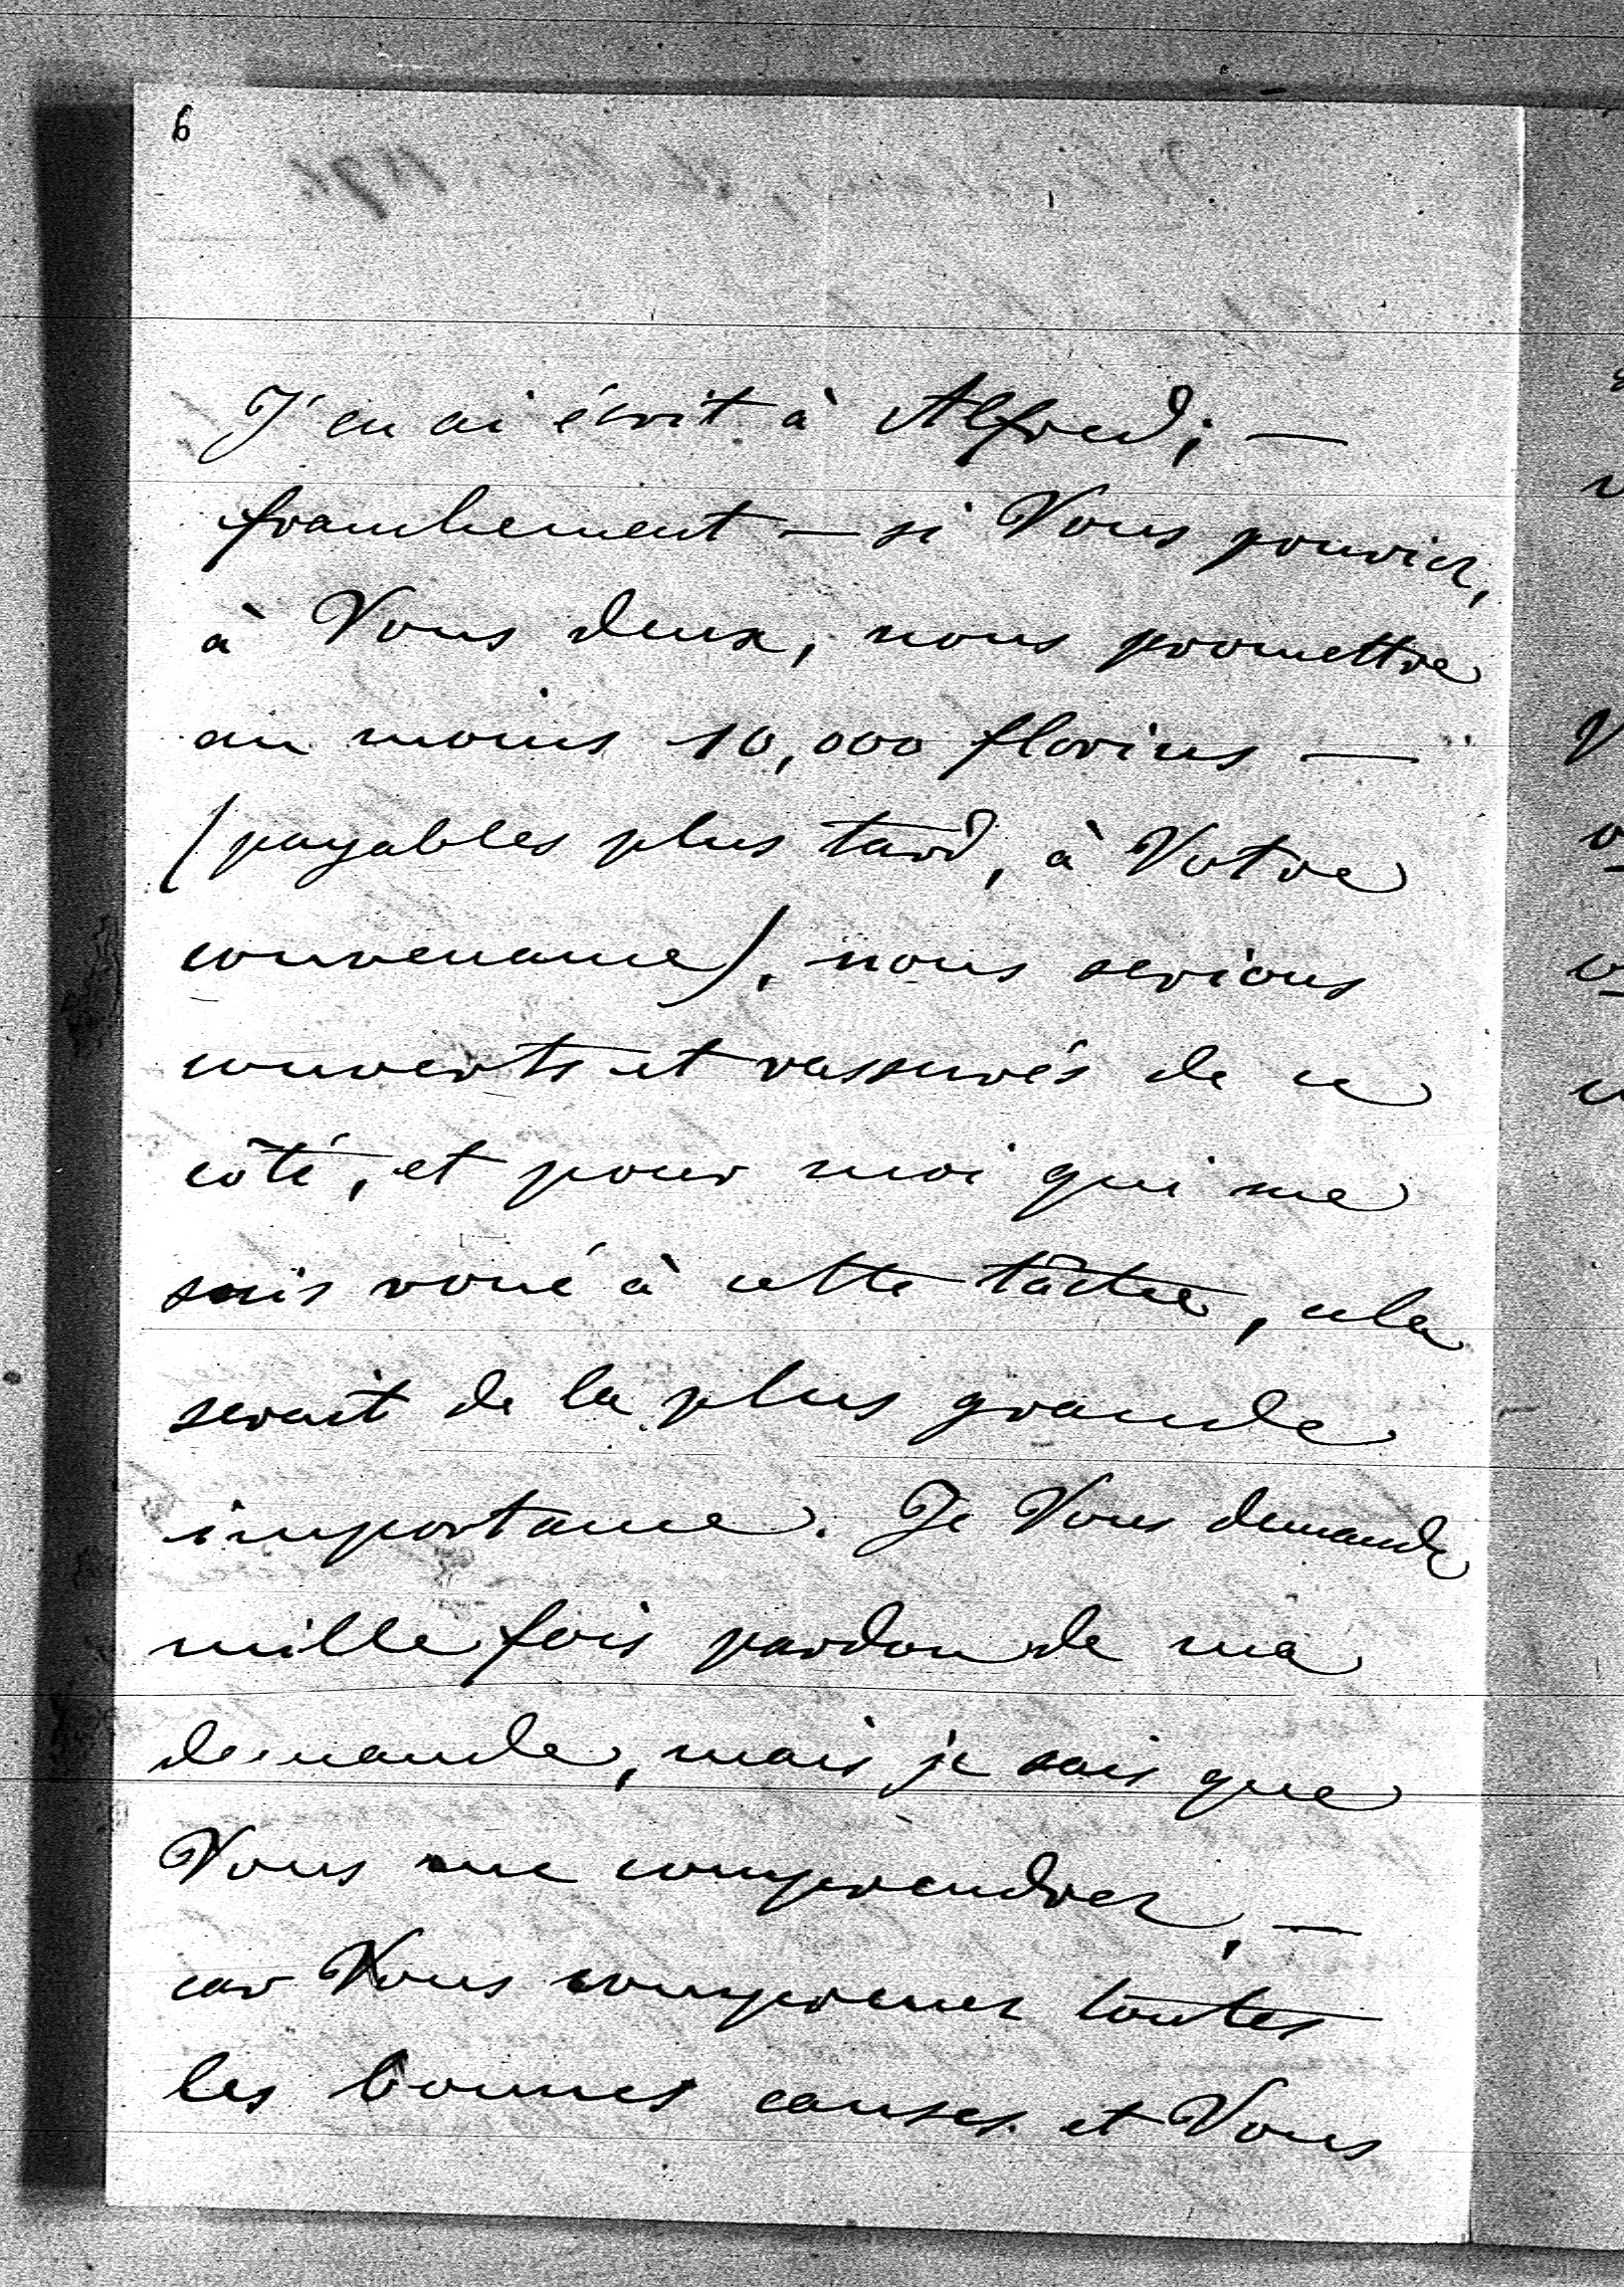 6
J'en ai écrit à Alfred; —
franchement — si Vous pouviez,
à Vous deux, nous promettre
au moins 10,000 florins —
(payables plus tard, à Votre
convenance), nous serions
couverts et rassurés de ce
côté, et pour moi qui me
suis voué à cette tâche, cela
serait de la plus grande
importance. Je Vous demande
mille fois pardon de ma
demande, mais je sais que
Vous me comprendrez, —
car Vous comprenez toutes
les bonnes causes et Vous